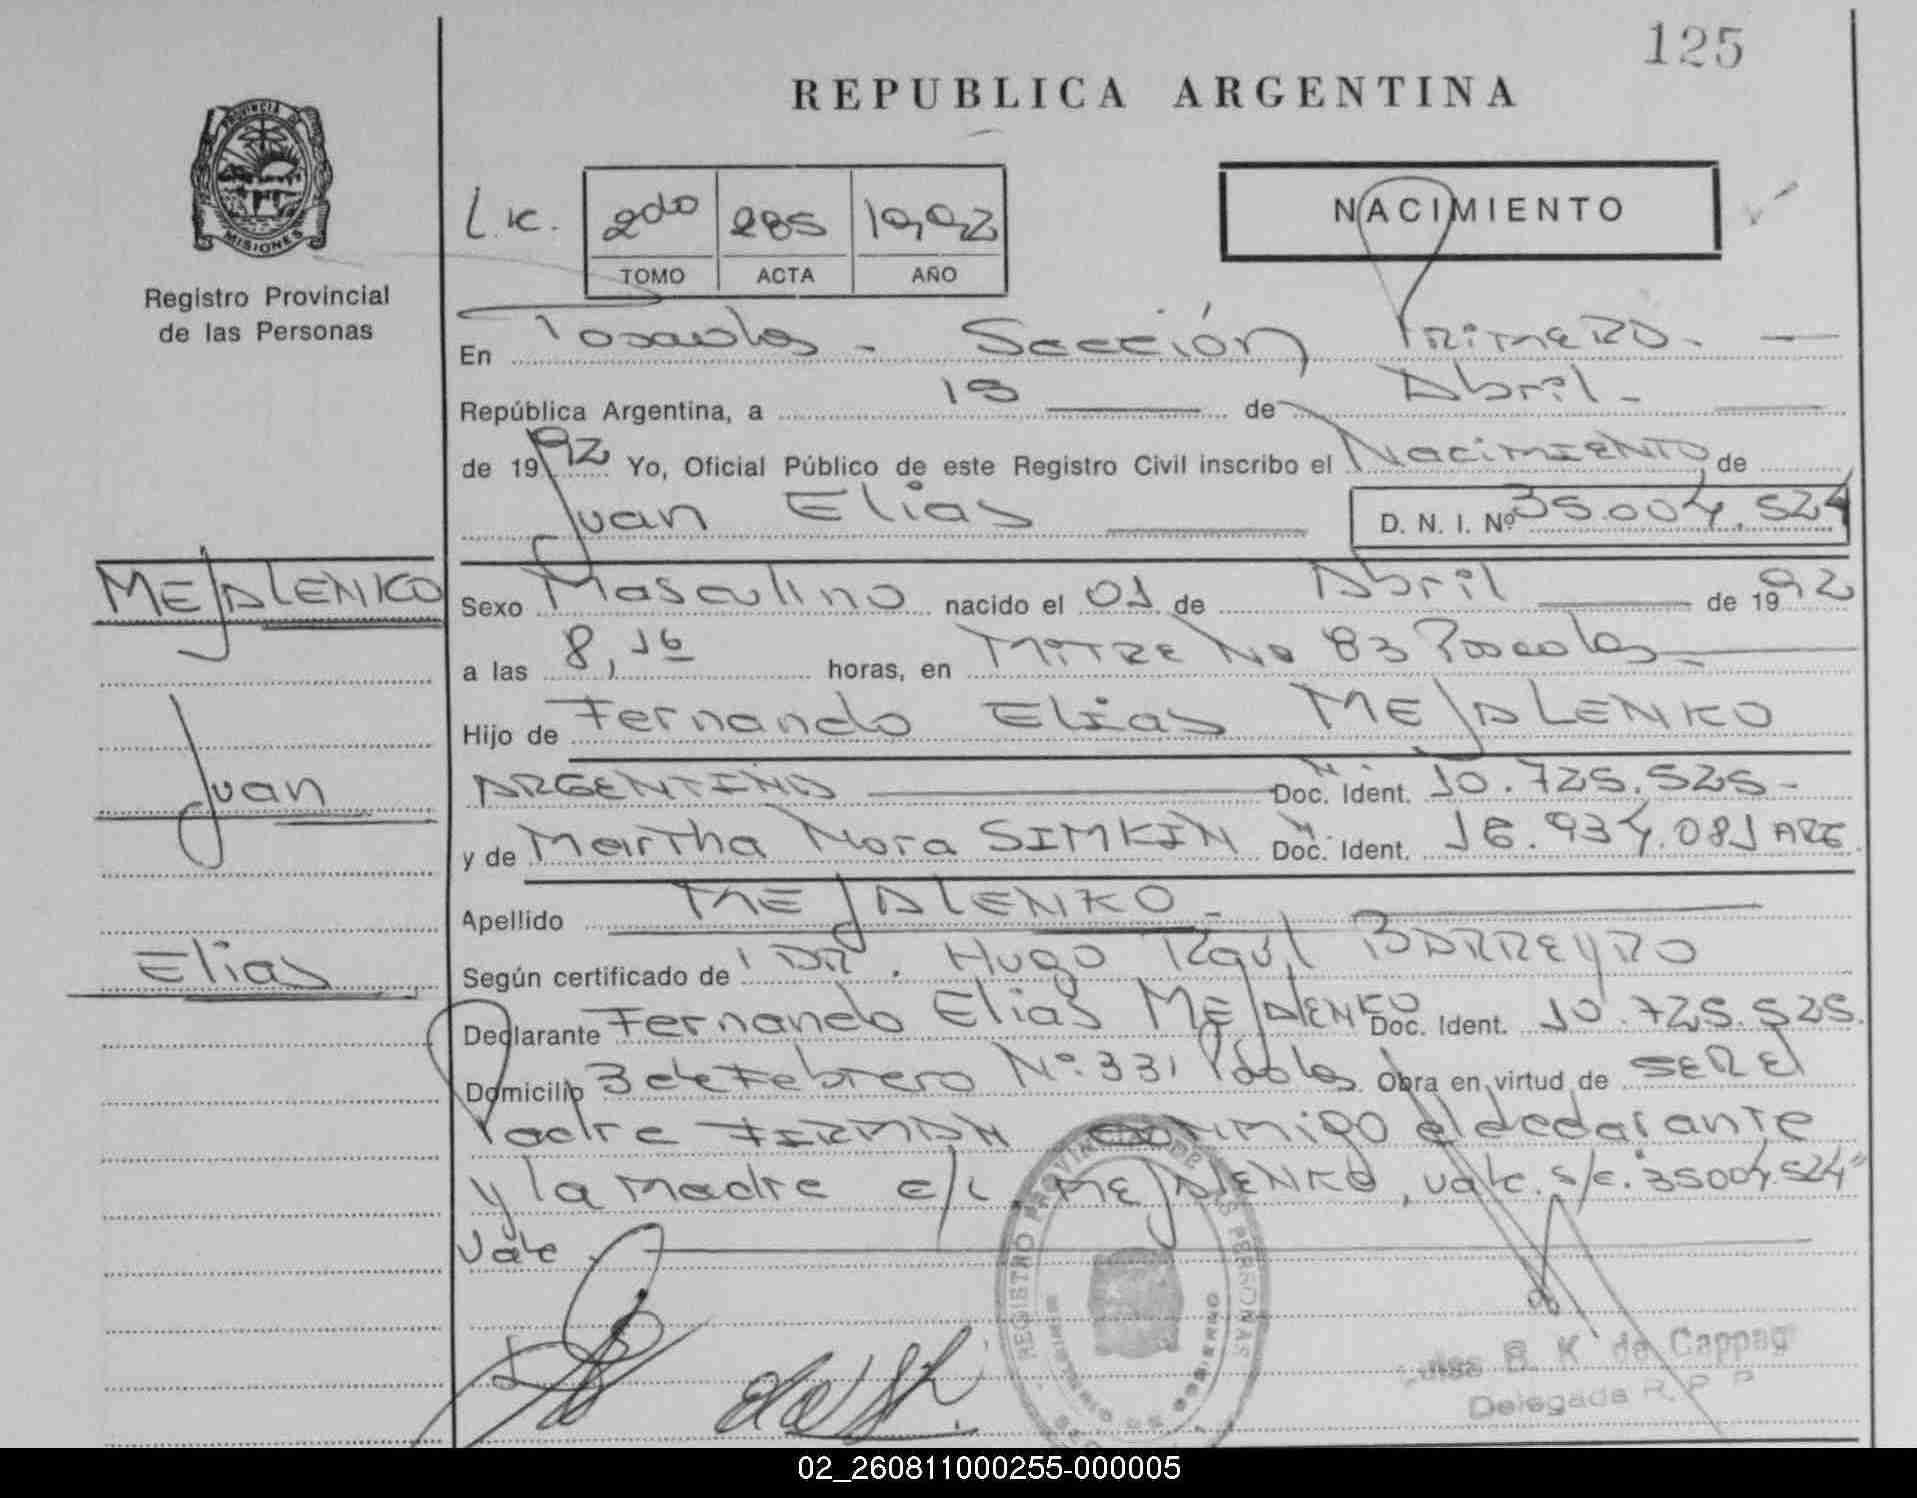 125
REPUBLICA ARGENTINA
PROVINCIA DE
MISIONES
Registro Provincial
de las Personas
L.c.
2do 285 1992
TOMO ACTA AÑO
NACIMIENTO
En Posadas - Sección Primero. —
República Argentina, a 13 de Abril -
de 1992 Yo, Oficial Público de este Registro Civil inscribo el Nacimiento de
Juan Elias D. N. I. Nº 35.004.524
MEJALENKO
Sexo Masculino nacido el 01 de Abril de 1992
a las 8,16 horas, en MITRE No 83 Posadas -
Hijo de Fernando Elias MEJALENKO
Juan
ARGENTINO Doc. Ident. 10.725.525 -
y de Martha Nora SIMKIN Doc. Ident. 16.934.081 ARG
Apellido MEJALENKO -
Elias
Según certificado de DR. Hugo Raúl BARREYRO
Declarante Fernando Elias MEJALENKO Doc. Ident. 10.725.525.
Domicilio 3 de Febrero Nº 331 Pdas Obra en virtud de SER El
Padre FIRMAN conmigo el declarante
y la madre e/l. MEJALENKO, vale. s/e. "35004.524"
Vale.
REGISTRO PROVINCIAL DE LAS PERSONAS
MINISTERIO DE GOBIERNO
B. K. de Cappag
Delegada R. P. P
02_260811000255-000005